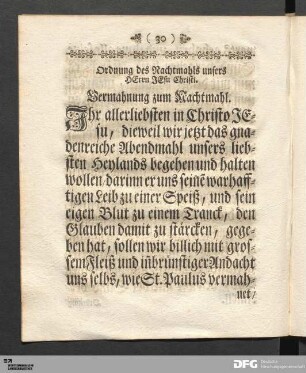 ( 30 )
Ordnung des Nachtmahls unsers
HErrn JEsu Christi.
Vermahnung zum Nachtmahl.
Ihr allerliebsten in Christo JE-
su, dieweil wir jetzt das gna-
denreiche Abendmahl unsers lieb-
sten Heylands begehen und halten
wollen/ darinn er uns seinē warhaff-
tigen Leib zu einer Speiß, und sein
eigen Blut zu einem Tranck, den
Glauben damit zu stärcken, gege-
ben hat, sollen wir billich mit gros-
sem Fleiß und inbrünstiger Andacht
uns selbs, wie St. Paulus vermah-
net/
DFG